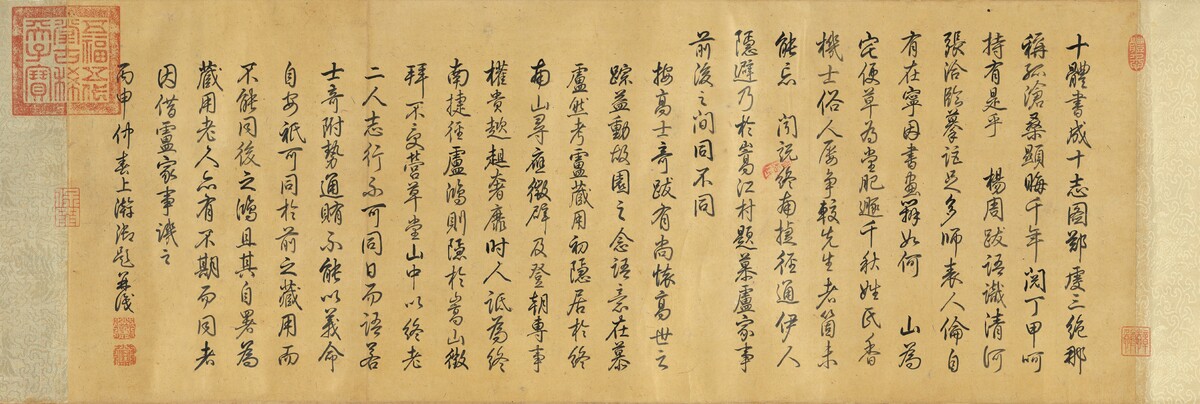 十體書成十志圖鄭虔三絕那
稱孤滄桑顯晦千年閱丁甲呵
持有是乎　楊周跋語識清河
張洽臨摹詎足多師表人倫自
有在寧因書畫辨如何　山為
宅便草為堂肥遯千秋姓氏香
機士俗人屢爭較先生老箇未
能忘　閱說終南捷徑通伊人
隱避乃於嵩江村題慕盧家事
前後之間同不同
按高士奇跋有尚懷高世之
蹤益動故園之念語意在慕
盧然考盧藏用初隱居於終
南山尋應徵辟及登朝專事
權貴趑趄奢靡時人詆為終
南捷徑盧鴻則隱於嵩山徵
拜不受營草堂山中以終老
二人志行不可同日而語若
士奇附勢通賄不能以義命
自安祇可同於前之藏用而
不能同後之鴻且其自署為
藏用老人亦有不期而同者
因借盧家事譏之
丙申仲春上澣御題并識
五福五代
堂古稀
天子寶